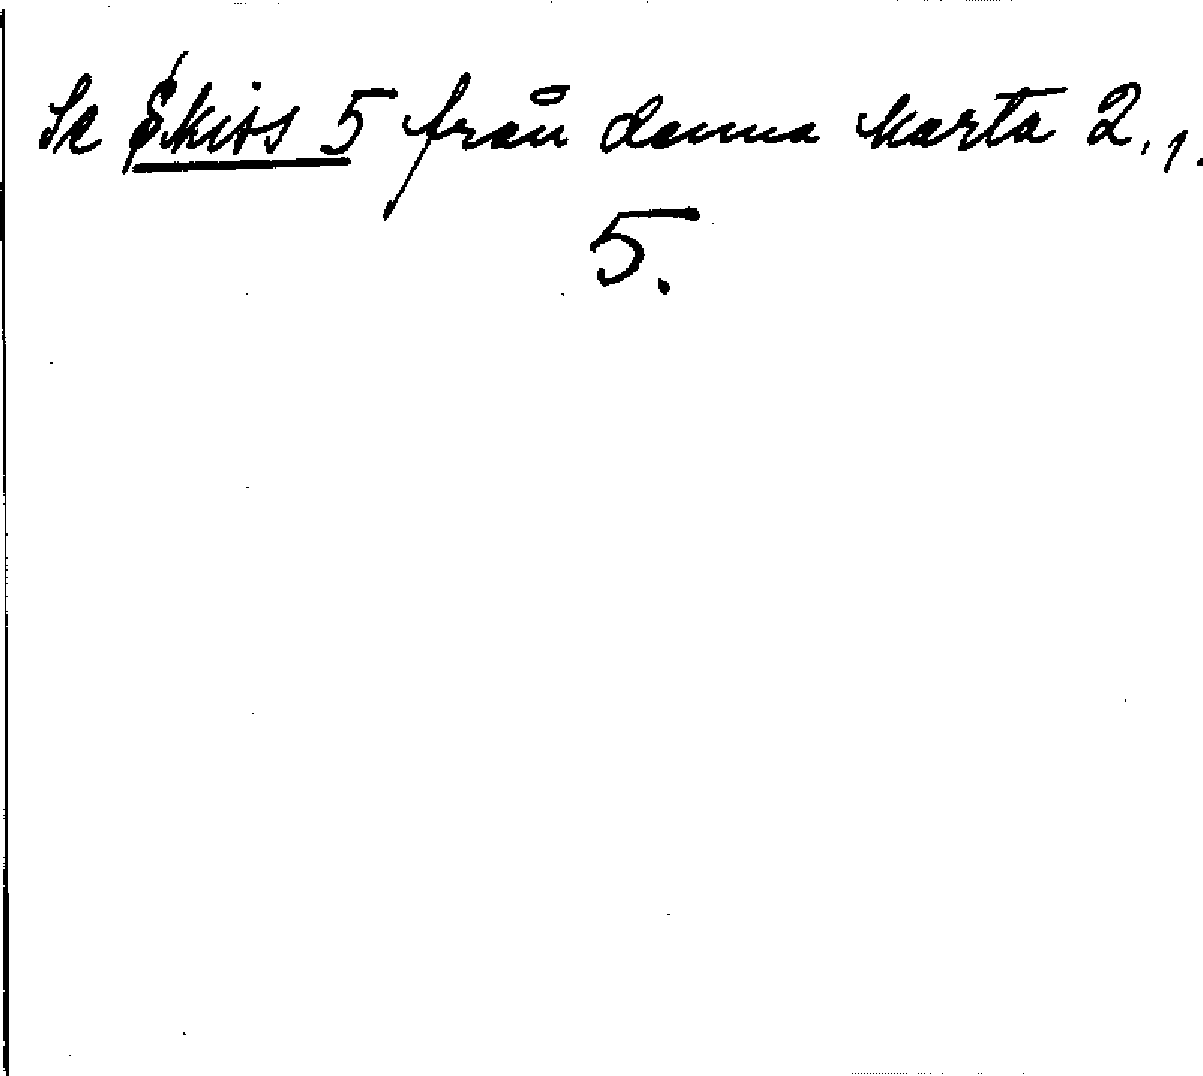 Se Skiss 5 från denna karta 2.,1.
5.